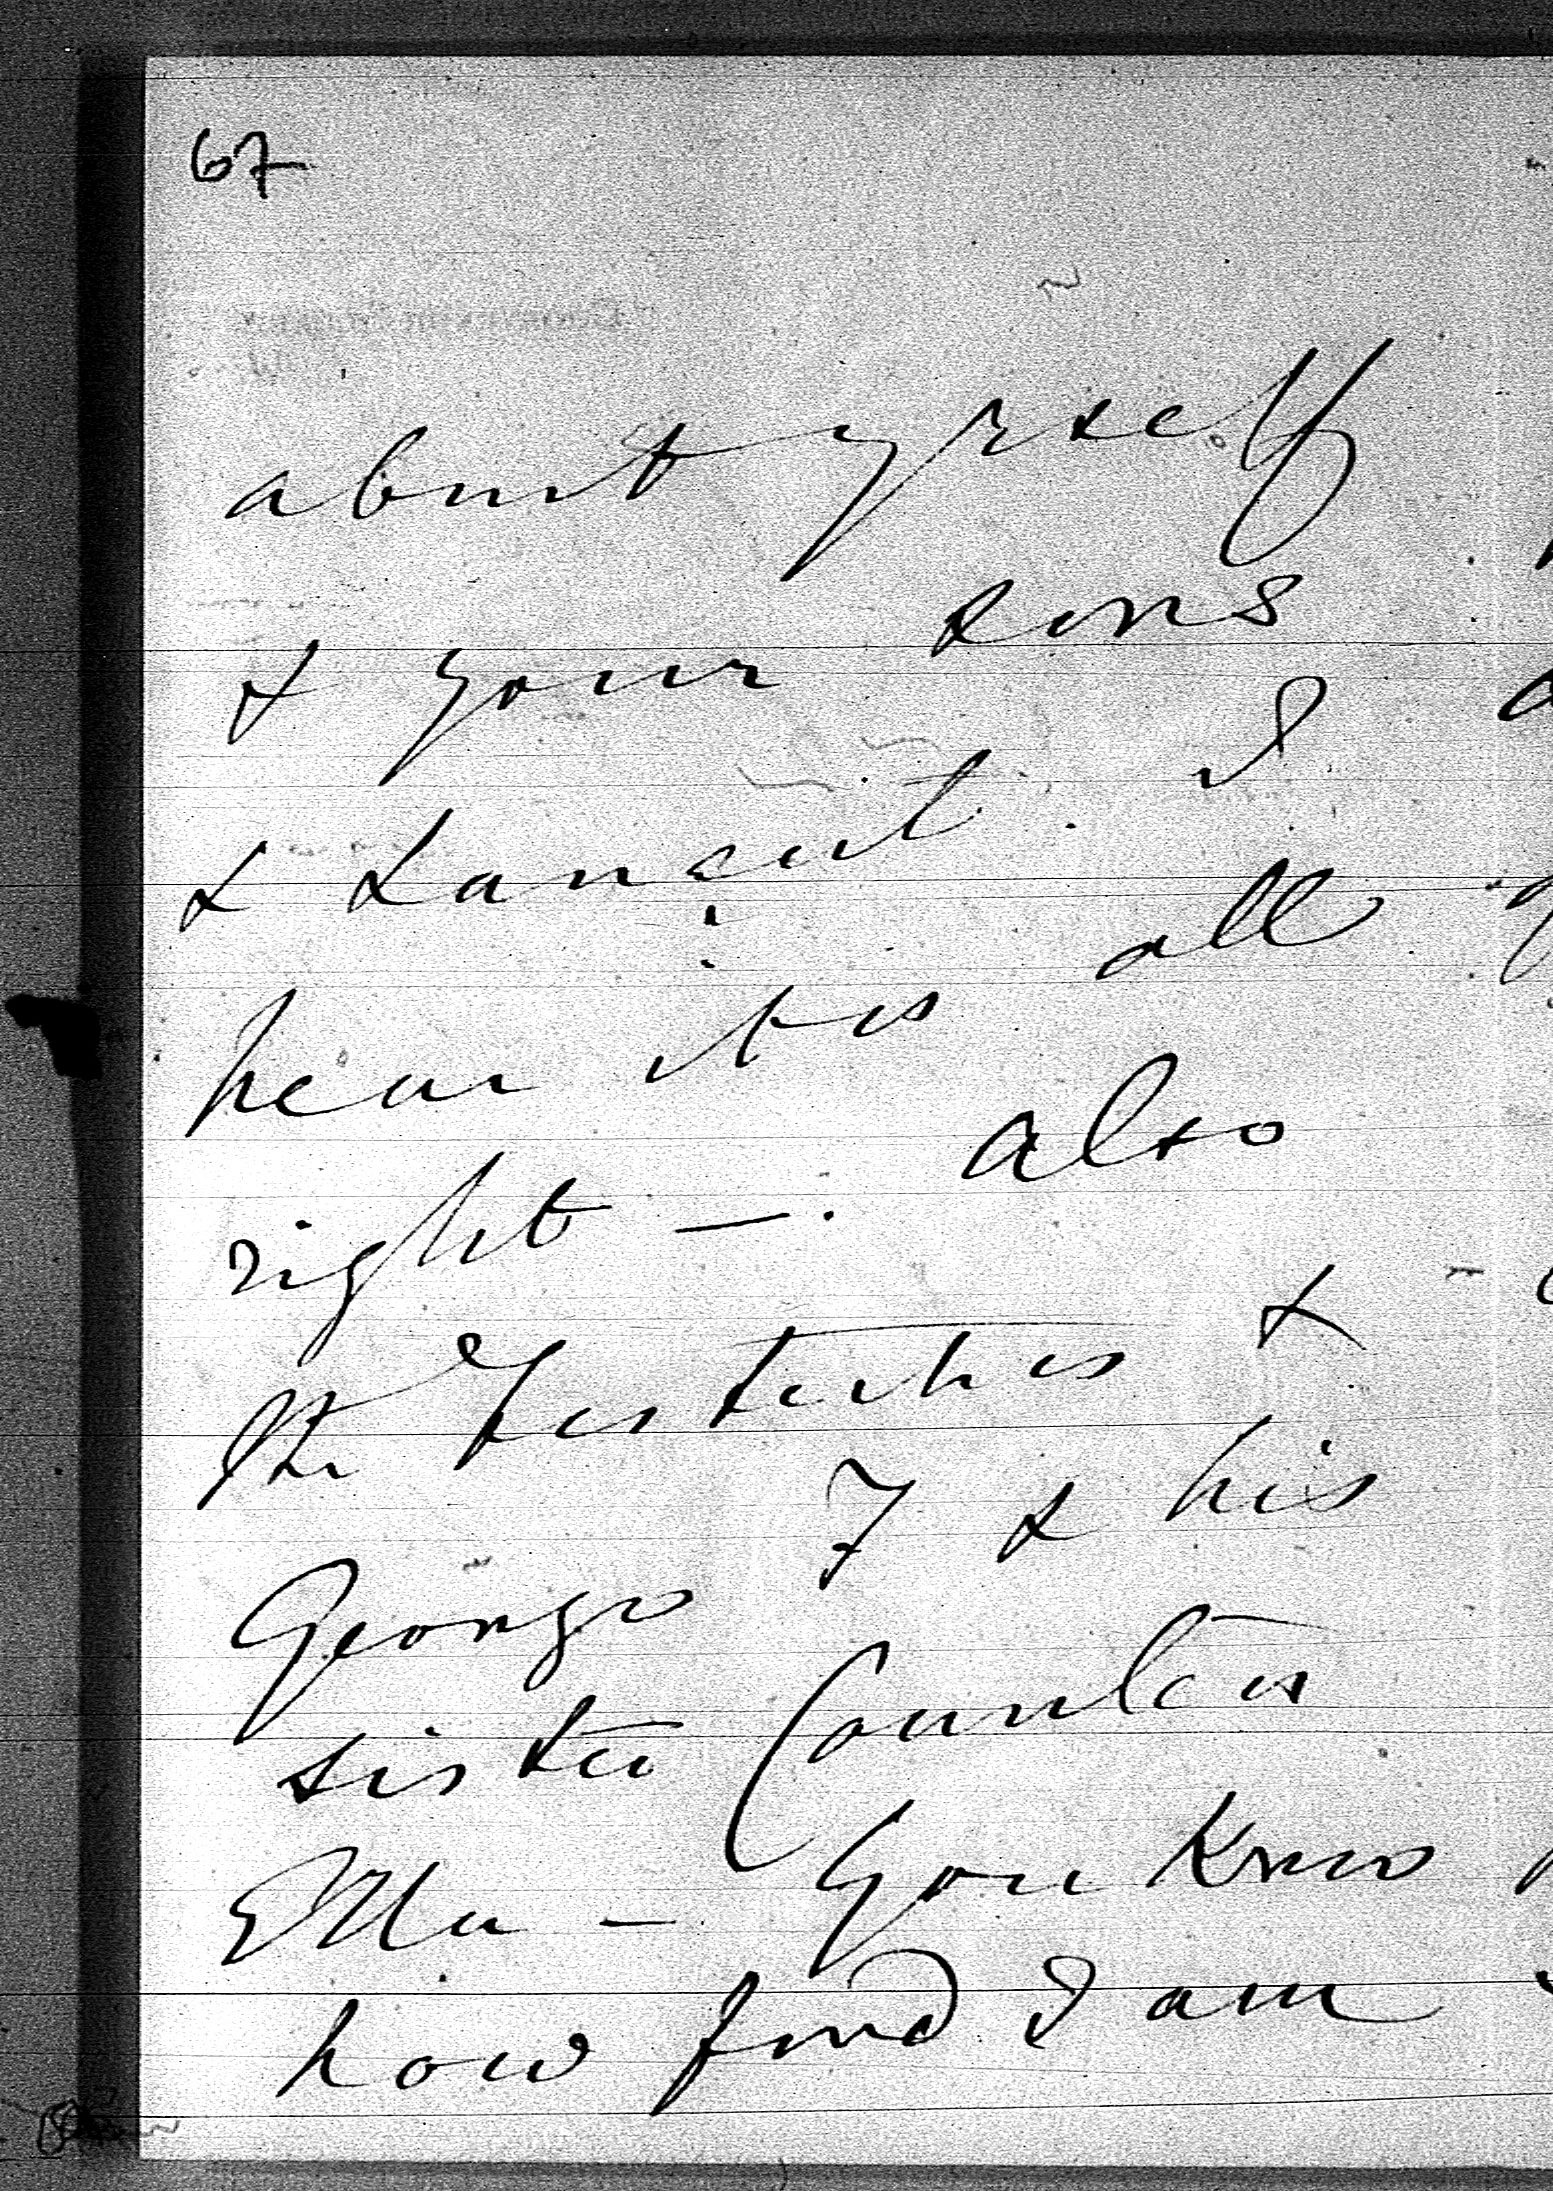 67
about yrself
& your sons
& Lancut. I
hear it is all
right —. also
the Festetics &
George F & his
sister Countess
Ella — You know
how fond I am